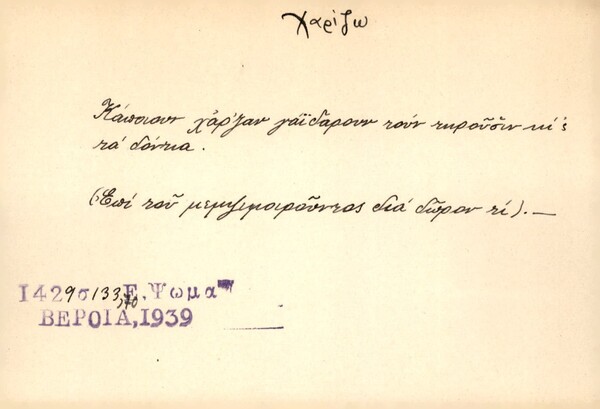 Χαρίζω
Κάποιουν χάρ'ζαν γάϊδαρουν τούν τηροῦσιν κί ς
τά δόντια.
(Ἐπί τοῦ μεμψιμοιροῦντος διά δῶρον τί).—
1429σ133,70 Ε. Ψωμα
ΒΕΡΟΙΑ,1939